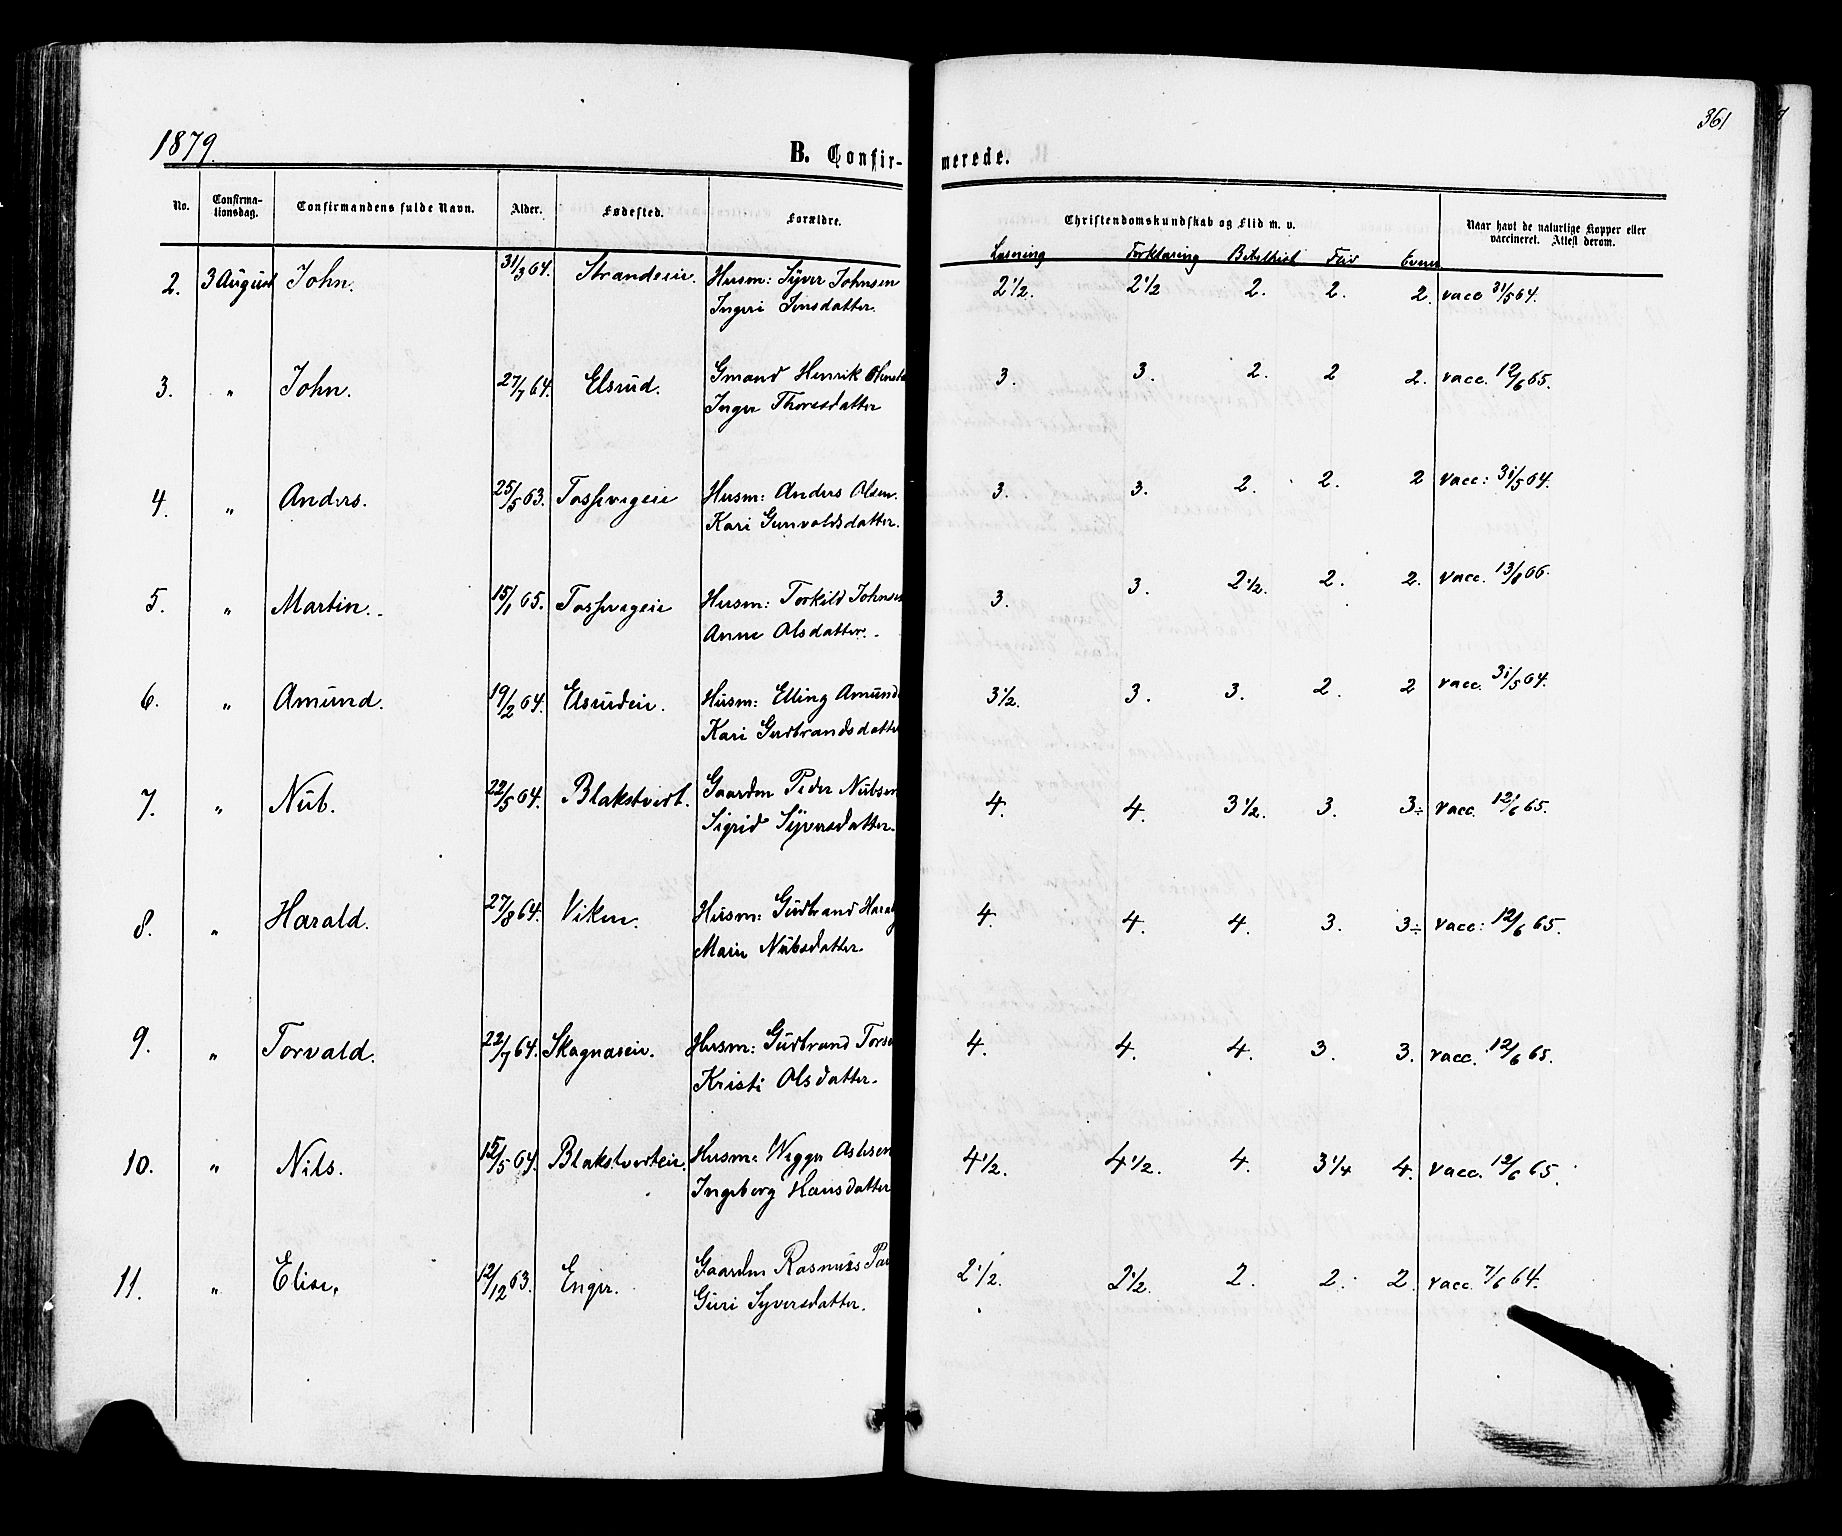 1879.
361
B. Confir-
merede.
No. Confirma-tionsdag. Confirmandens fulde Navn. Alder. Fødested. Forældre. Christendomskundskab og Flid m. v. Naar havt de naturlige Kopper eller vaccineret. Attest derom.
Læsning Forklaring Flid Evner
2. 3 August John. 31/3 64. Strandeie. Husm: Syver Johnsen 2 1/2. 2 1/2 2. 2. 2. vacc 31/5 64.
Ingeri Jensdatter.
3. " John. 27/7 64. Elsrud. Gmand Henrik 3. 3. 2. 2 2. vacc. 12/6 65.
Inger Thoresdatter
4. " Anders. 25/5 63. Tossevigeie Husm: Anders Olsen. 3. 3. 2. 2. 2 vacc: 31/5 64.
Kari Gunvoldsdatter.
5. " Martin. 15/1 65. Tossevigeie Husm: Torkild Johnsen 3. 3. 2 1/2. 2. 2. vacc. 13/8 66.
Anne Olsdatter.
6. " Amund. 19/2 64. Elsrudeie. Husm: Elling Amund 3 1/2. 3. 3. 2. 2 vacc. 31/5 64.
Kari Gudbrandsdatter
7. " Nub. 22/5 64. Blakstvedt. Gaardm Peder Nubsen 4. 4. 3 1/2. 3. 3÷ vacc. 12/6 65.
Sigrid Syversdatter.
8. " Harald. 27/8 64. Viken. Husm: Gudbrand Haral 4. 4. 4. 3. 3÷ vacc: 12/6 65.
Marie Nubsdatter.
9. " Torvald. 22/7 64. Skagnæseie. Husm: Gudbrand Torse 4. 4. 4. 3. 3. vacc. 12/6 65.
Kristi Olsdatter.
10. " Nils. 15/5 64. Blakstvedteie. Husm: Wiggu Aslesen 4 1/2. 4 1/2. 4. 3 1/4 4. vacc. 12/6 65.
Ingeborg Hansdatter
11. " Elise. 12/12 63. Enger. Gaardm Rasmus Pa 2 1/2. 2 1/2. 2. 2. 2. vacc. 7/6 64.
Guri Syversdatter.